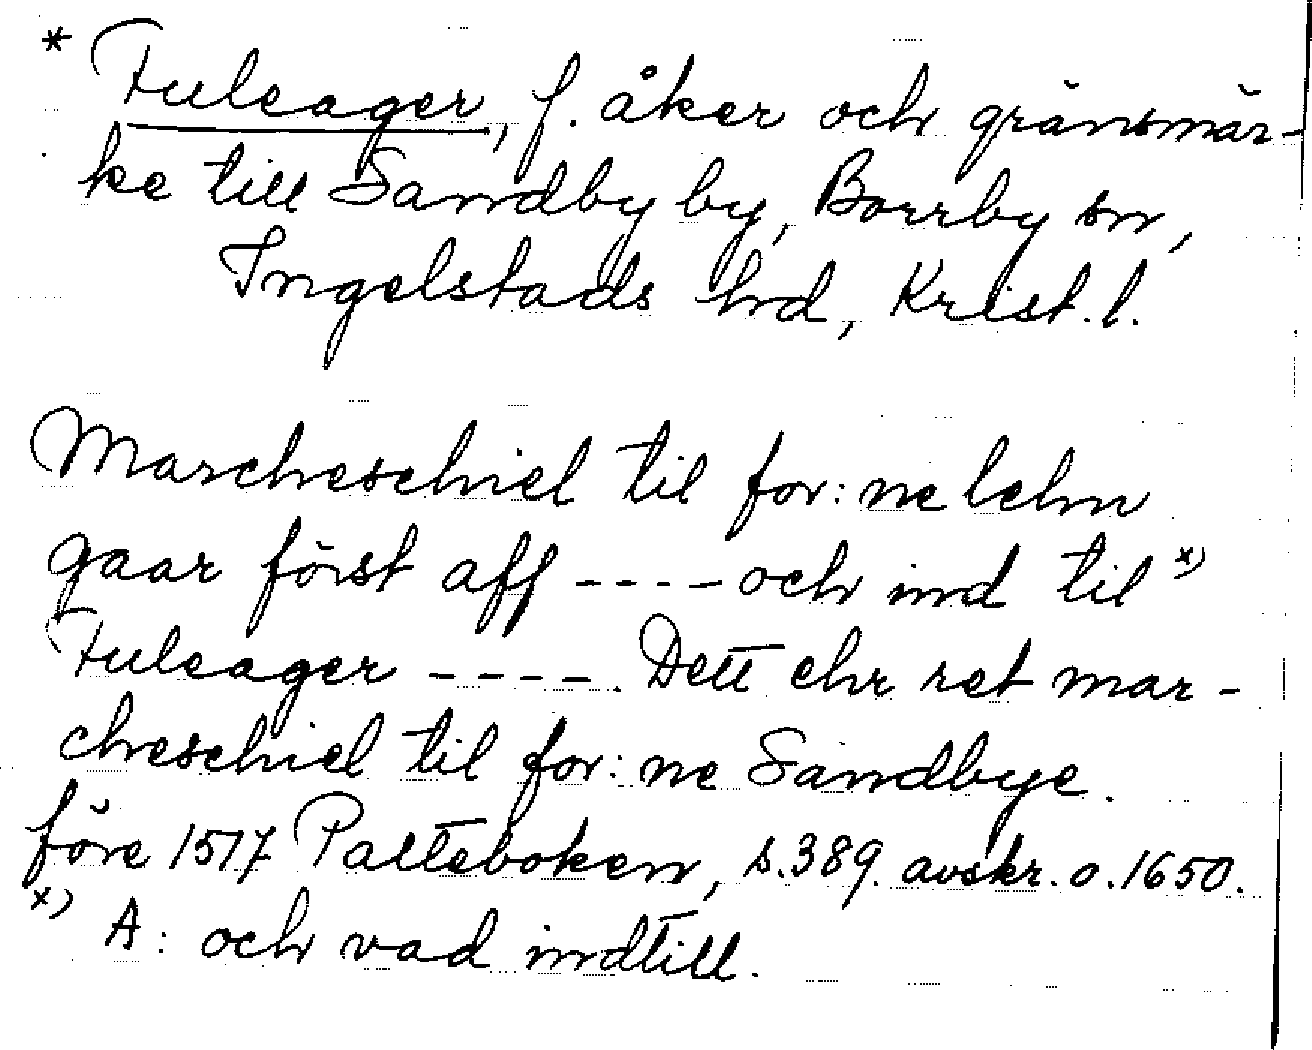 * Fuleager, f. åker och gränsmär-
ke till Sandby by, Borrby sn,
Ingelstads hrd, Krist. l.
Marcheschiel til for: ne lehn
gaar först aff ---- och ind til x)
Fuleager ----. Dett ehr ret mar-
cheschiel til for: ne Sandbye.
före 1517 Palteboken, s. 389. avskr. o. 1650.
x) A: och vad indtill.